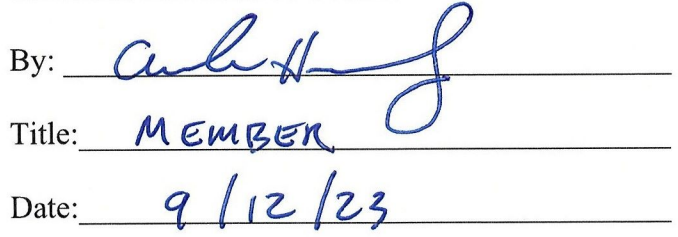 By:
Title: MEMBER
Date: 9/12/23